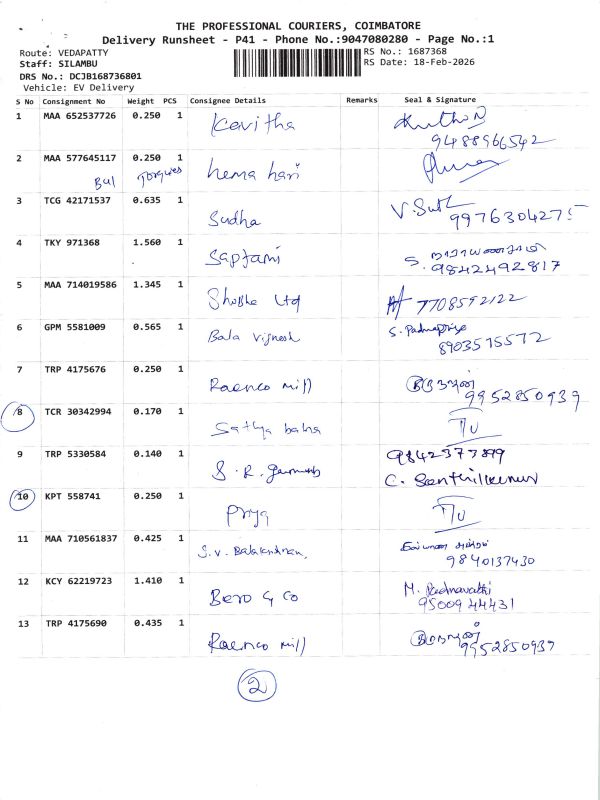 THE PROFESSIONAL COURIERS, COIMBATORE
Delivery Runsheet - P41 - Phone No.:9047080280 - Page No.:1
Route: VEDAPATTY RS No.: 1687368
Staff: SILAMBU RS Date: 18-Feb-2026
DRS No.: DCJB168736801
Vehicle: EV Delivery
S No Consignment No Weight PCS Consignee Details Remarks Seal & Signature
1 MAA 652537726 0.250 1 Kavitha
9488966542
2 MAA 577645117 0.250 1 hema hari
3 TCG 42171537 0.635 1 Sudha
9976304275
4 TKY 971368 1.560 1 Saptami S.
9842492817
5 MAA 714019586 1.345 1 Shobha Ltd 7708592122
6 GPM 5581009 0.565 1 Bala Vignesh S. Padmapriya
8903575572
7 TRP 4175676 0.250 1 Raenco mill
9952850939
8 TCR 30342994 0.170 1 Sathya bama
9 TRP 5330584 0.140 1 S. R. Garments 9842377899
C. Senthilkumar
10 KPT 558741 0.250 1 Priya
11 MAA 710561837 0.425 1 S.V. Balakrishnan,
9840137430
12 KCY 62219723 1.410 1 Bero & Co M. Padmavathi
9500944431
13 TRP 4175690 0.435 1 Raenco mill
9952850939
2